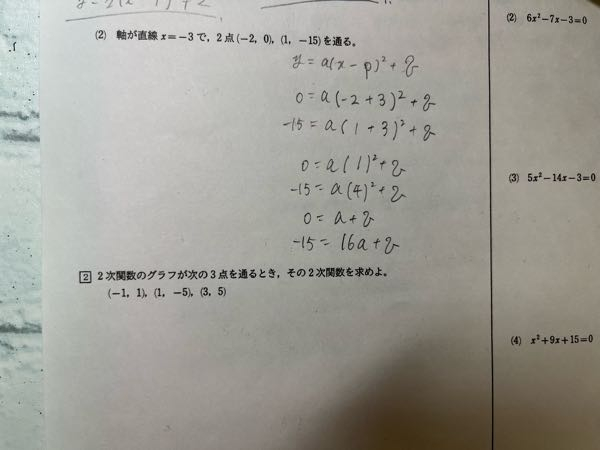 (2) 軸が直線 x=−3 で，2点(−2, 0), (1, −15)を通る。
y = a(x − p)² + q
0 = a(−2 + 3)² + q
−15 = a(1 + 3)² + q
0 = a(1)² + q
−15 = a(4)² + q
0 = a + q
−15 = 16a + q
2 2次関数のグラフが次の3点を通るとき，その2次関数を求めよ。
(−1, 1), (1, −5), (3, 5)
(2) 6x²−7x−3=0
(3) 5x²−14x−3=0
(4) x²+9x+15=0